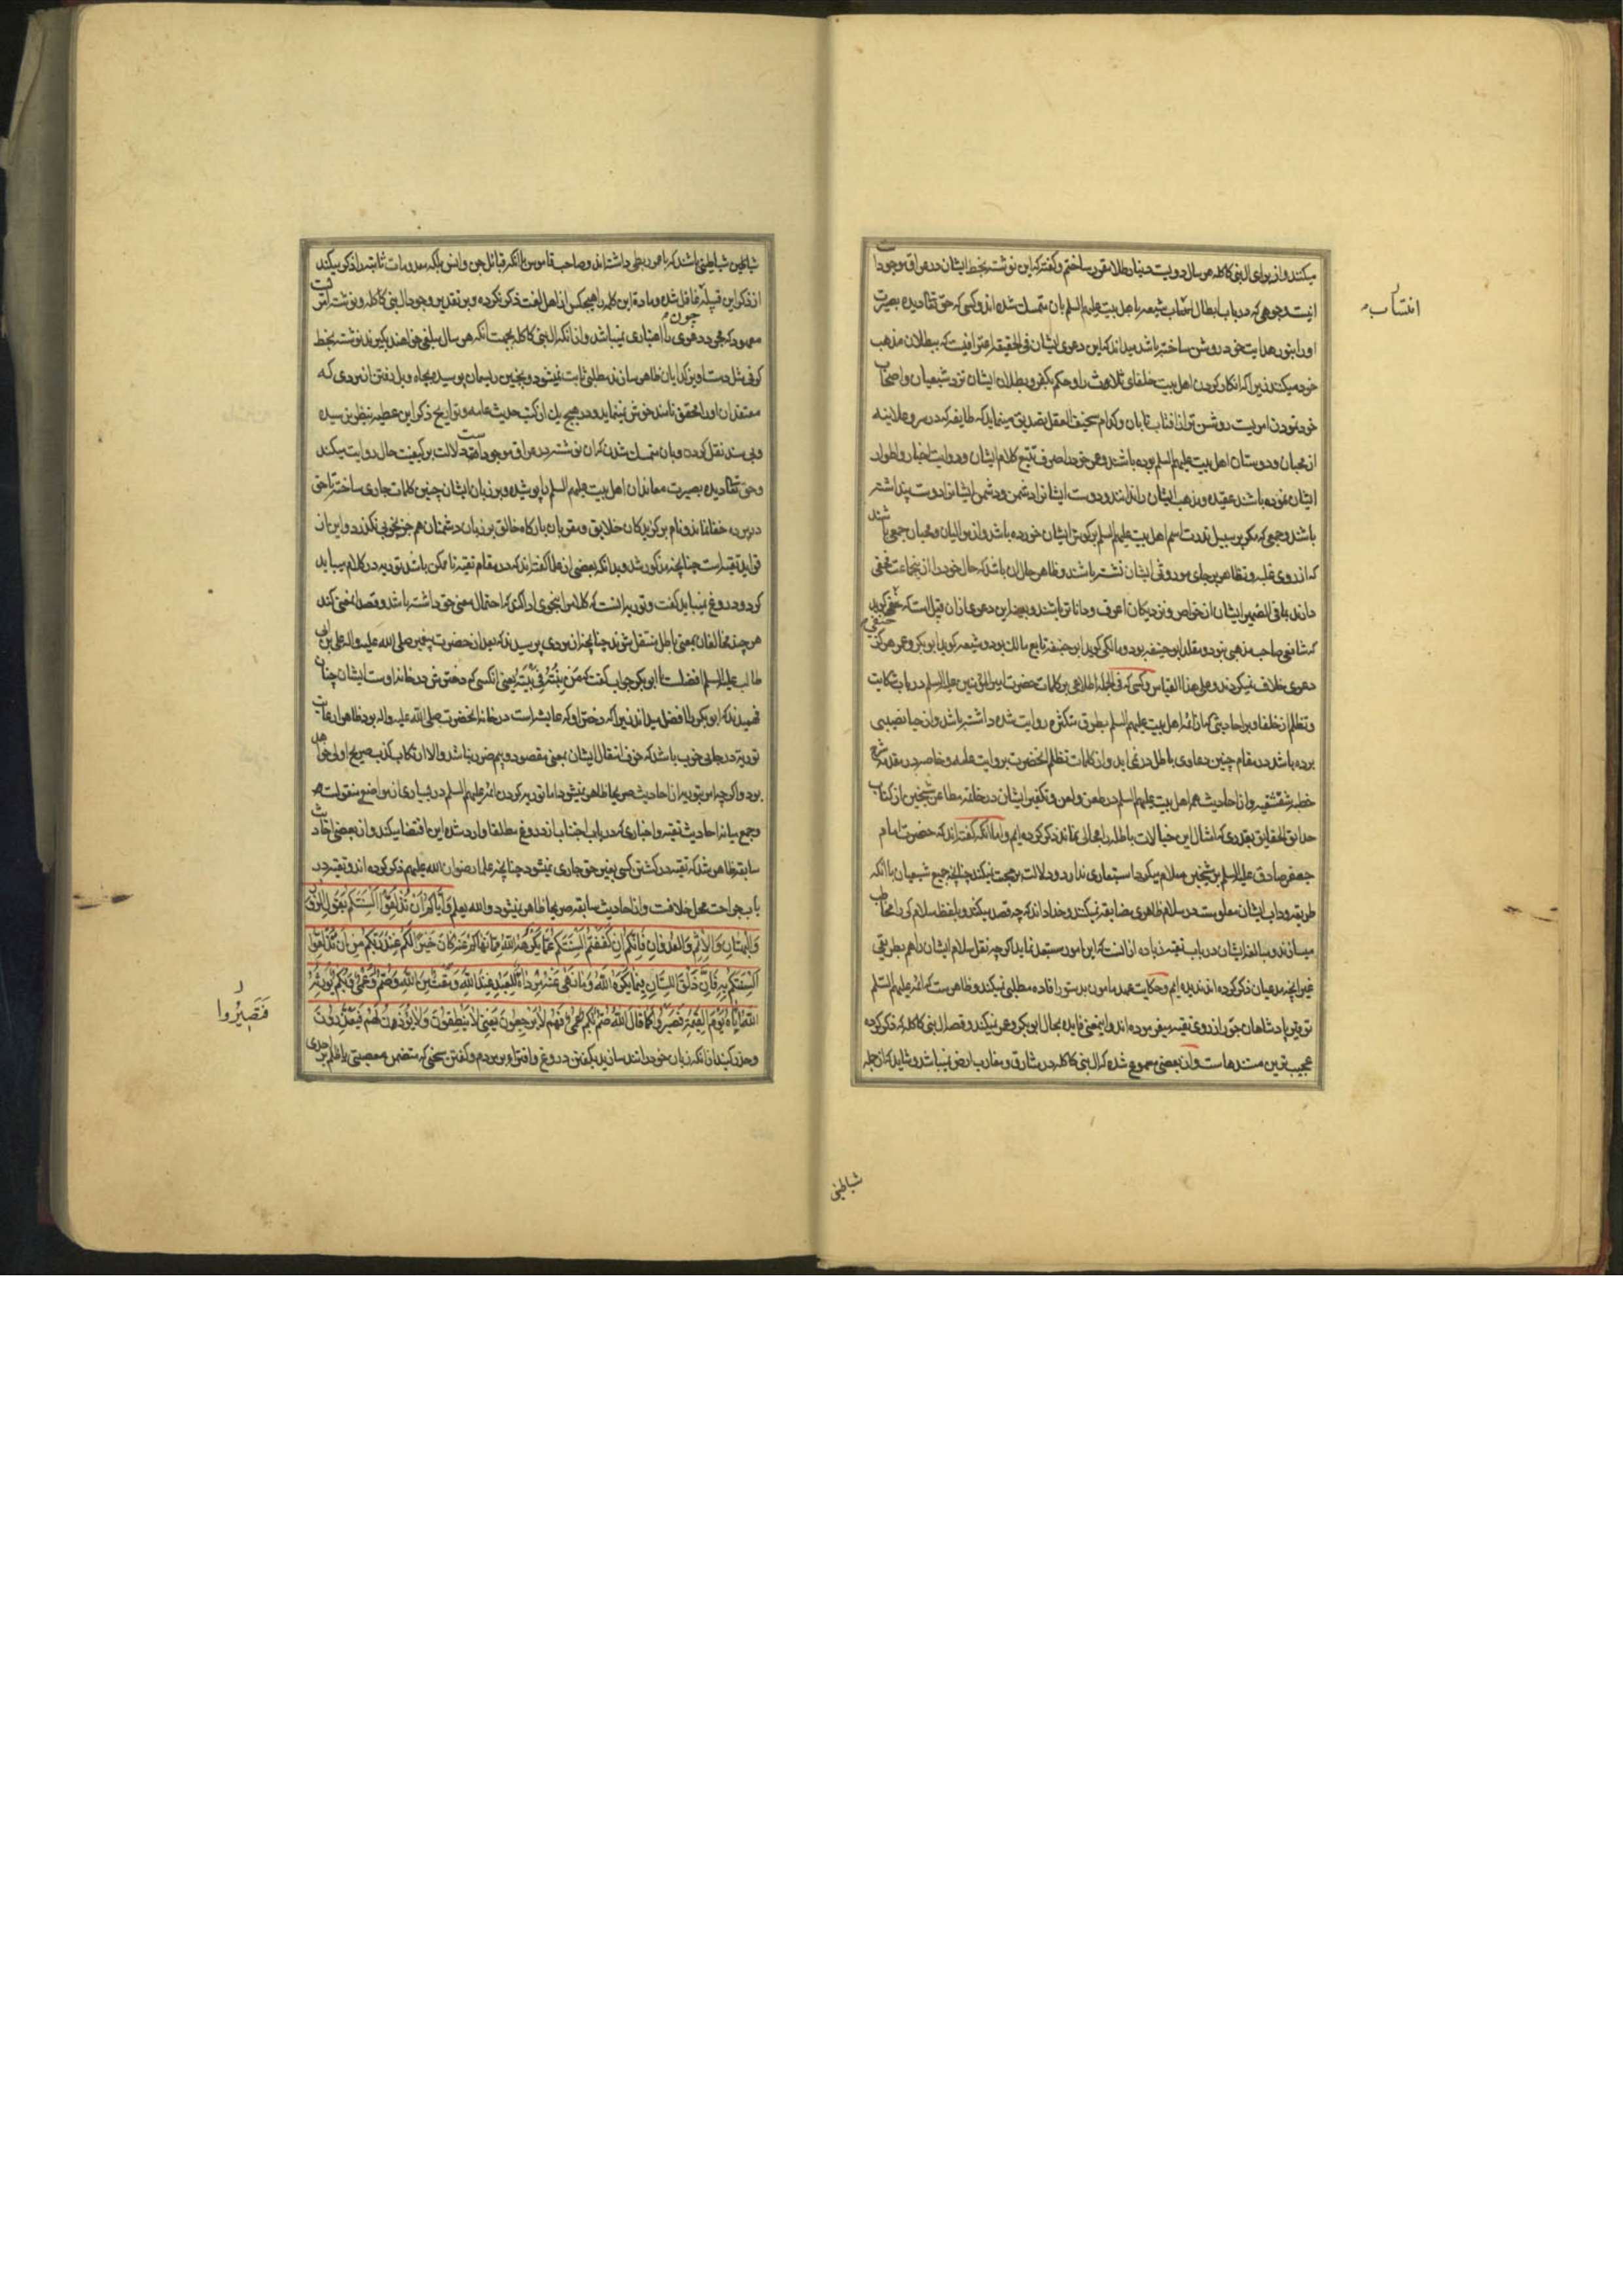 میکنند و از برای البنی کاکله هر سال دویست دینار طلا مقرر ساختم و گفته که این نوشته بخط ایشان در عراق موجود است
اینست وجوهی که در باب ابطال انتساب شیعه باهل بیت علیهم السلم بان متمسک شده اند و کسی که حق تعالی دیده بصیرت
او را بنور هدایت خود روشن ساخته باشد میداند که این دعوی ایشان فی الحقیقه اعترافیست که ببطلان مذهب
خود میکنند زیرا که انکار کردن اهل بیت خلفای ثلاثه را و حکم بکفر و بطلان ایشان نزد شیعیان و اصحاب
خود نمودن امریست روشن تر از افتاب تابان و کدام سخیف العقل تصدیق مینماید که طایفه که در سر و علانیه
از محبان و دوستان اهل بیت علیهم السلم بوده باشند و عمر خود را صرف تتبع کلام ایشان و روایت اخبار و اطوار
ایشان نموده باشند عقیده و مذهب ایشان را ندانند و دوست ایشانرا دشمن و دشمن ایشانرا دوست پنداشته
باشند و جمعی که مکر بر سبیل ندرت اسم اهل بیت علیهم السلم بر گوش ایشان خورده باشد و از موالیان و محبان جمعی باشند
که از روی غلبه و تظاهر بر جای موروثی ایشان نشسته باشند و ظاهر حال ان باشد که حال خود را از انجماعت مخفی
دارند بما فی الضمیر ایشان از خواص و نزدیکان اعرف و داناتر باشند و بعینه این دعوی از ان قبیل است که شخصی گوید
که شافعی صاحب مذهبی نبود و مقلد ابو حنیفه بود و مالکی گوید ابو حنیفه تابع مالک بود و شیعه گوید ابو بکر و عمر هرگز
دعوی خلافت نمیکردند و علی هذا القیاس و کسی که فی الجمله اطلاعی بر کلمات حضرت امیر المؤمنین علیه السلم در باب شکایت
و تظلم از خلفا و بر احادیثی که از ائمه اهل بیت علیهم السلم بطرق متکثره روایت شده داشته باشد و از حیا نصیبی
برده باشد در مقام چنین دعاوی باطل در نمی اید و از کلمات تظلم انحضرت بروایت عامه و خاصه در مقدمه شرح
خطبه شقشقیه و از احادیث ائمه اهل بیت علیهم السلم در طعن و لعن و تکفیر ایشان در خاتمه مطاعن شیخین از کتاب
حدایق الحقایق بقدری که امثال این خیالات باطله را مجالی نماند ذکر کرده ایم و اما انکه گفته اند که حضرت امام
جعفر صادق علیه السلم بر شیخین سلام میکرد استبعادی ندارد و دلالت بر محبت نمیکند چنانچه جمیع شیعیان با انکه
طریقه و داب ایشان معلومست در سلام ظاهری مضایقه نمیکنند و خدا داند که چه قصد میکنند و بلفظ سلام کی را مخاطب
میسازند و مبالغه ایشان در باب تقیه زیاده از انست که این امور مستبعد نماید اگرچه نقل سلام ایشان را هم بطریقی
غیر انچه مدعیان ذکر کرده اند ندیده ایم و حکایت عهد مامون بدستور افاده مطلبی نمیکند و ظاهرست که ائمه علیهم السلم
توقیر پادشاهان جور از روی تقیه میفرموده اند و اینمعنی فایده بحال ابو بکر و عمر نمیکند و قصه البنی کاکله که ذکر کرده
عجیب ترین مستندهاست و از بعضی مسموع شده که البنی کاکله در مشارق و مغارب ارض نمیباشد و شاید که از جمله
انتساب
شیاطین
شیاطین شیاطینی باشد که با عمر ربطی داشته اند و صاحب قاموس با انکه قبائل جن و انس بلکه معدومات ثابته را ذکر میکند
از ذکر این قبیله غافل شده و مادة این کلمه را هیچکس از اهل لغت ذکر نکرده و بر تقدیر وجود البنی کاکله و نوشته افترا
معهود که مجرد دعوی را اعتباری نمیباشد و از انکه البنی کاکله بجهت انکه هر سال مبلغی خواهند بگیرند نوشته بخط
کوفی مثل دست اویز گدایان ظاهر سازند مطلبی ثابت نمیشود و بچنین ریسمان پوسیده بچاه وبل رفتن از مردی که
معتقدان او را محقق نامند خوش نمینماید و در هیچ یک از کتب حدیث عامه و تواریخ ذکر این عطیه بنظر نرسیده
و بی سند نقل کردن و بان متمسک شدن که ان نوشته در عراق موجود است دلالت بر کیفیت حال روایت میکند
و حق تعالی دیده بصیرت معاندان اهل بیت علیهم السلم را پوشیده و بر زبان ایشان چنین کلمات جاری ساخته تا حق
در پرده خفا نماند و نام برگزیدگان خلایق و مقربان بارگاه خالق بر زبان دشمنان هم جز بخوبی نگذرد و این از
فواید تقیه است چنانچه مذکور شد و بدانکه بعضی از علما گفته اند که در مقام تقیه تا ممکن باشد توریه در کلام میباید
کرد و دروغ نمیباید گفت و توریه انست که کلام را بنحوی ادا کنی که احتمال معنی حق داشته باشد و قصد انمعنی کند
هر چند مخالفان بمعنی باطل منتقل شوند چنانچه از مردی پرسیدند که بعد از حضرت پیغمبر صلی الله علیه و اله علی بن ابی
طالب علیه السلم افضلست یا ابو بکر جواب گفت که مَنْ بِنْتُهُ فِی بَیْتِه یعنی انکسی که دخترش در خانه اوست ایشان چنان
فهمیدند که ابو بکر را افضل میداند زیرا که دختر او که عایشه است در خانه انحضرت صلی الله علیه و اله بود ظاهرا رعایت
توریة در جایی خوب باشد که خوف انتقال ایشان بمعنی مقصود و بیم ضرر نباشد و الا ارتکاب کذب صریح اولی خواهد
بود و اگرچه امر بتوریه از احادیث صریحا ظاهر نمیشود اما توریه کردن ائمه علیهم السلم در بسیاری از مواضع منقولست
و جمع میانه احادیث تقیه و اخباری که در باب اجتناب از دروغ مطلقا وارد شده این اقتضا میکند و از بعضی احادیث
سابقه ظاهر شد که تقیه در کشتن کسی بغیر حق جاری نمیشود چنانچه علما رضوان الله علیهم ذکر کرده اند و تقیه در
باب جراحت محل خلافست و از احادیث سابقه صریحا ظاهر نمیشود و الله یعلم وَاِیَّاکُمْ اَنْ تُذْلِقُوا اَلْسِنَتَکُمْ بِقَوْلِ الزُّورِ
وَالْبُهْتَانِ وَالْاِثْمِ وَالْعُدْوَانِ فَاِنَّکُمْ اِنْ کَفَفْتُمْ اَلْسِنَتَکُمْ عَمَّا یَکْرَهُهُ اللّٰهُ مِمَّا نَهَاکُمْ عَنْهُ کَانَ خَیْرًا لَکُمْ عِنْدَ رَبِّکُمْ مِنْ اَنْ تُذْلِقُوا
اَلْسِنَتَکُمْ بِهِ فَاِنَّ ذَلْقَ اللِّسَانِ فِیمَا یَکْرَهُ اللّٰهُ وَمَا نَهَی عَنْهُ مَرْدَاةٌ لِلْعَبْدِ عِنْدَ اللّٰهِ وَمَقْتٌ مِنَ اللّٰهِ وَصَمَمٌ وَعَمًی وَبَکَمٌ یُورِثُهُ
اللّٰهُ اِیَّاهُ یَوْمَ الْقِیٰمَةِ فَتَصِیرُوا کَمَا قَالَ اللّٰهُ صُمٌّ بُکْمٌ عُمْیٌ فَهُمْ لَا یَرْجِعُونَ یَعْنِی لَا یَنْطِقُونَ وَلَا یُؤْذَنُ لَهُمْ فَیَعْتَذِرُونَ
و حذر کنید از انکه زبان خود را تند سازید بگفتن دروغ و افترا بر مردم و گفتن سخنی که متضمن معصیتی یا ظلم بر احدی
فَتَصِیرُوا